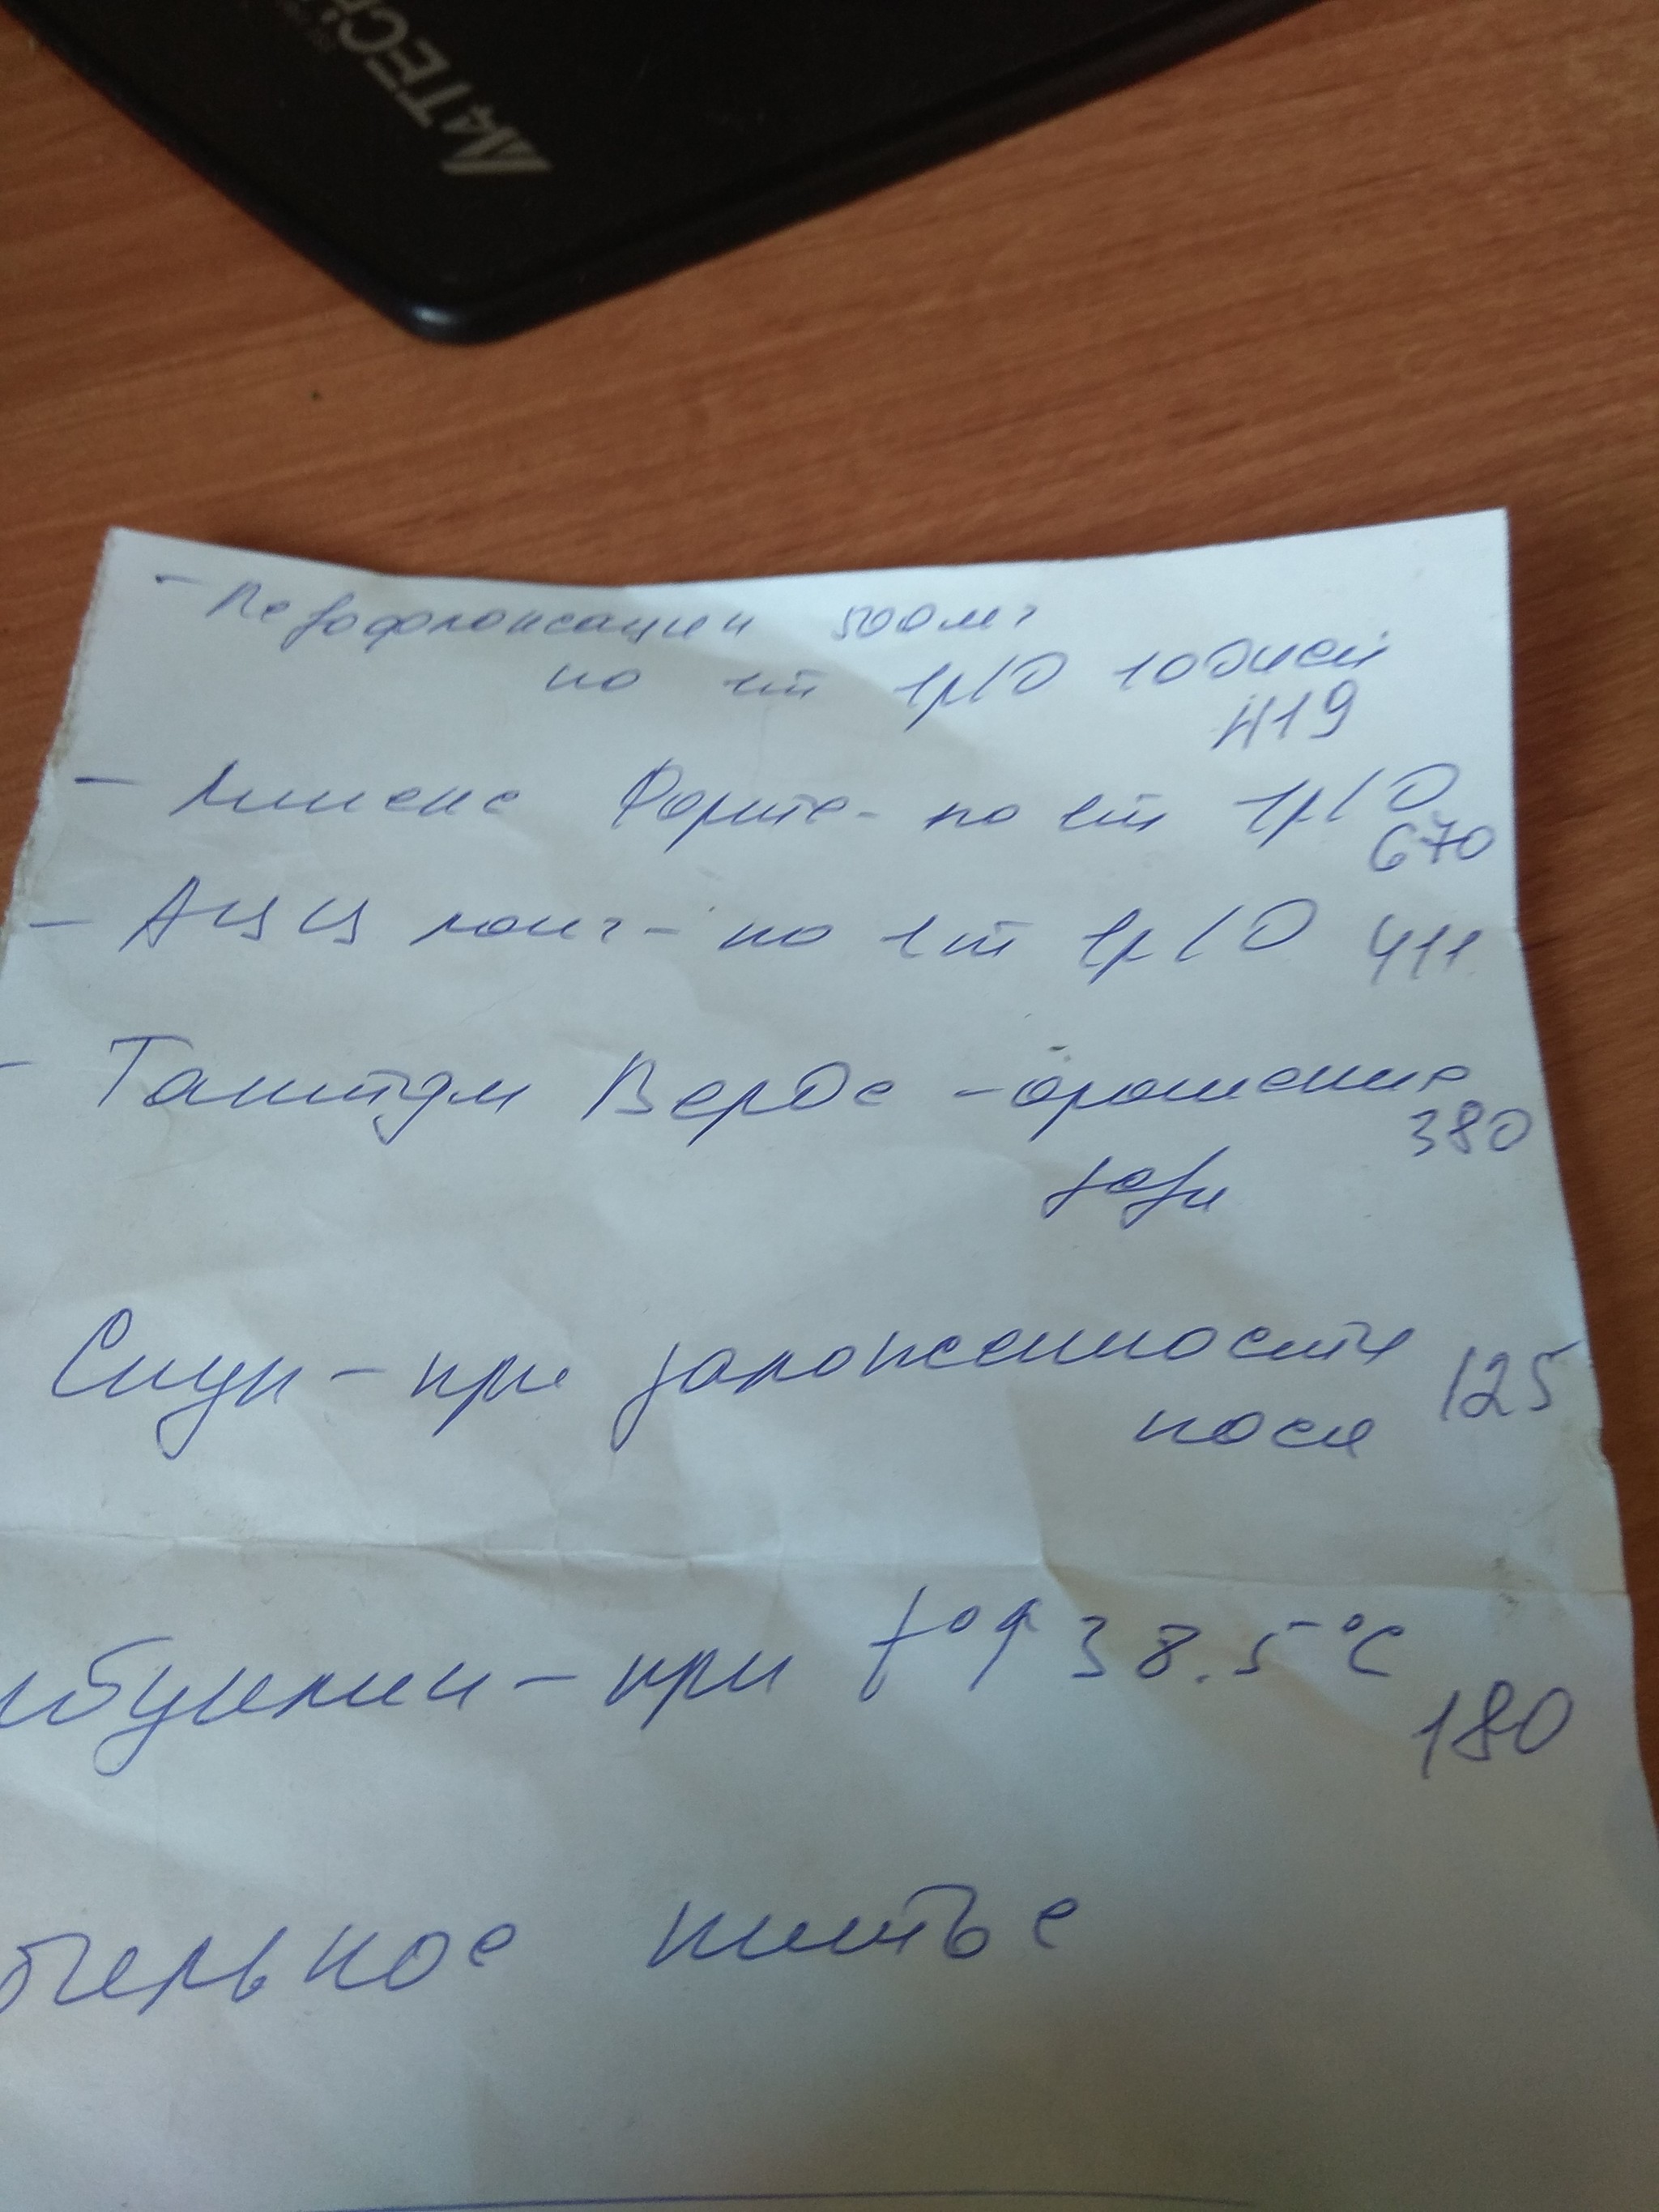 A4TECH
- Левофлоксацин 500мг
по 1т 1р/D 10дней
419
- Линекс Форте - по 1т 1р/D
670
- АЦЦ лонг - по 1т 1р/D 411
- Тантум Верде - орошение
380
зева
Снуп - при заложенности 125
носа
ибуклин - при t°↑ 38.5°C
180
тельное питье